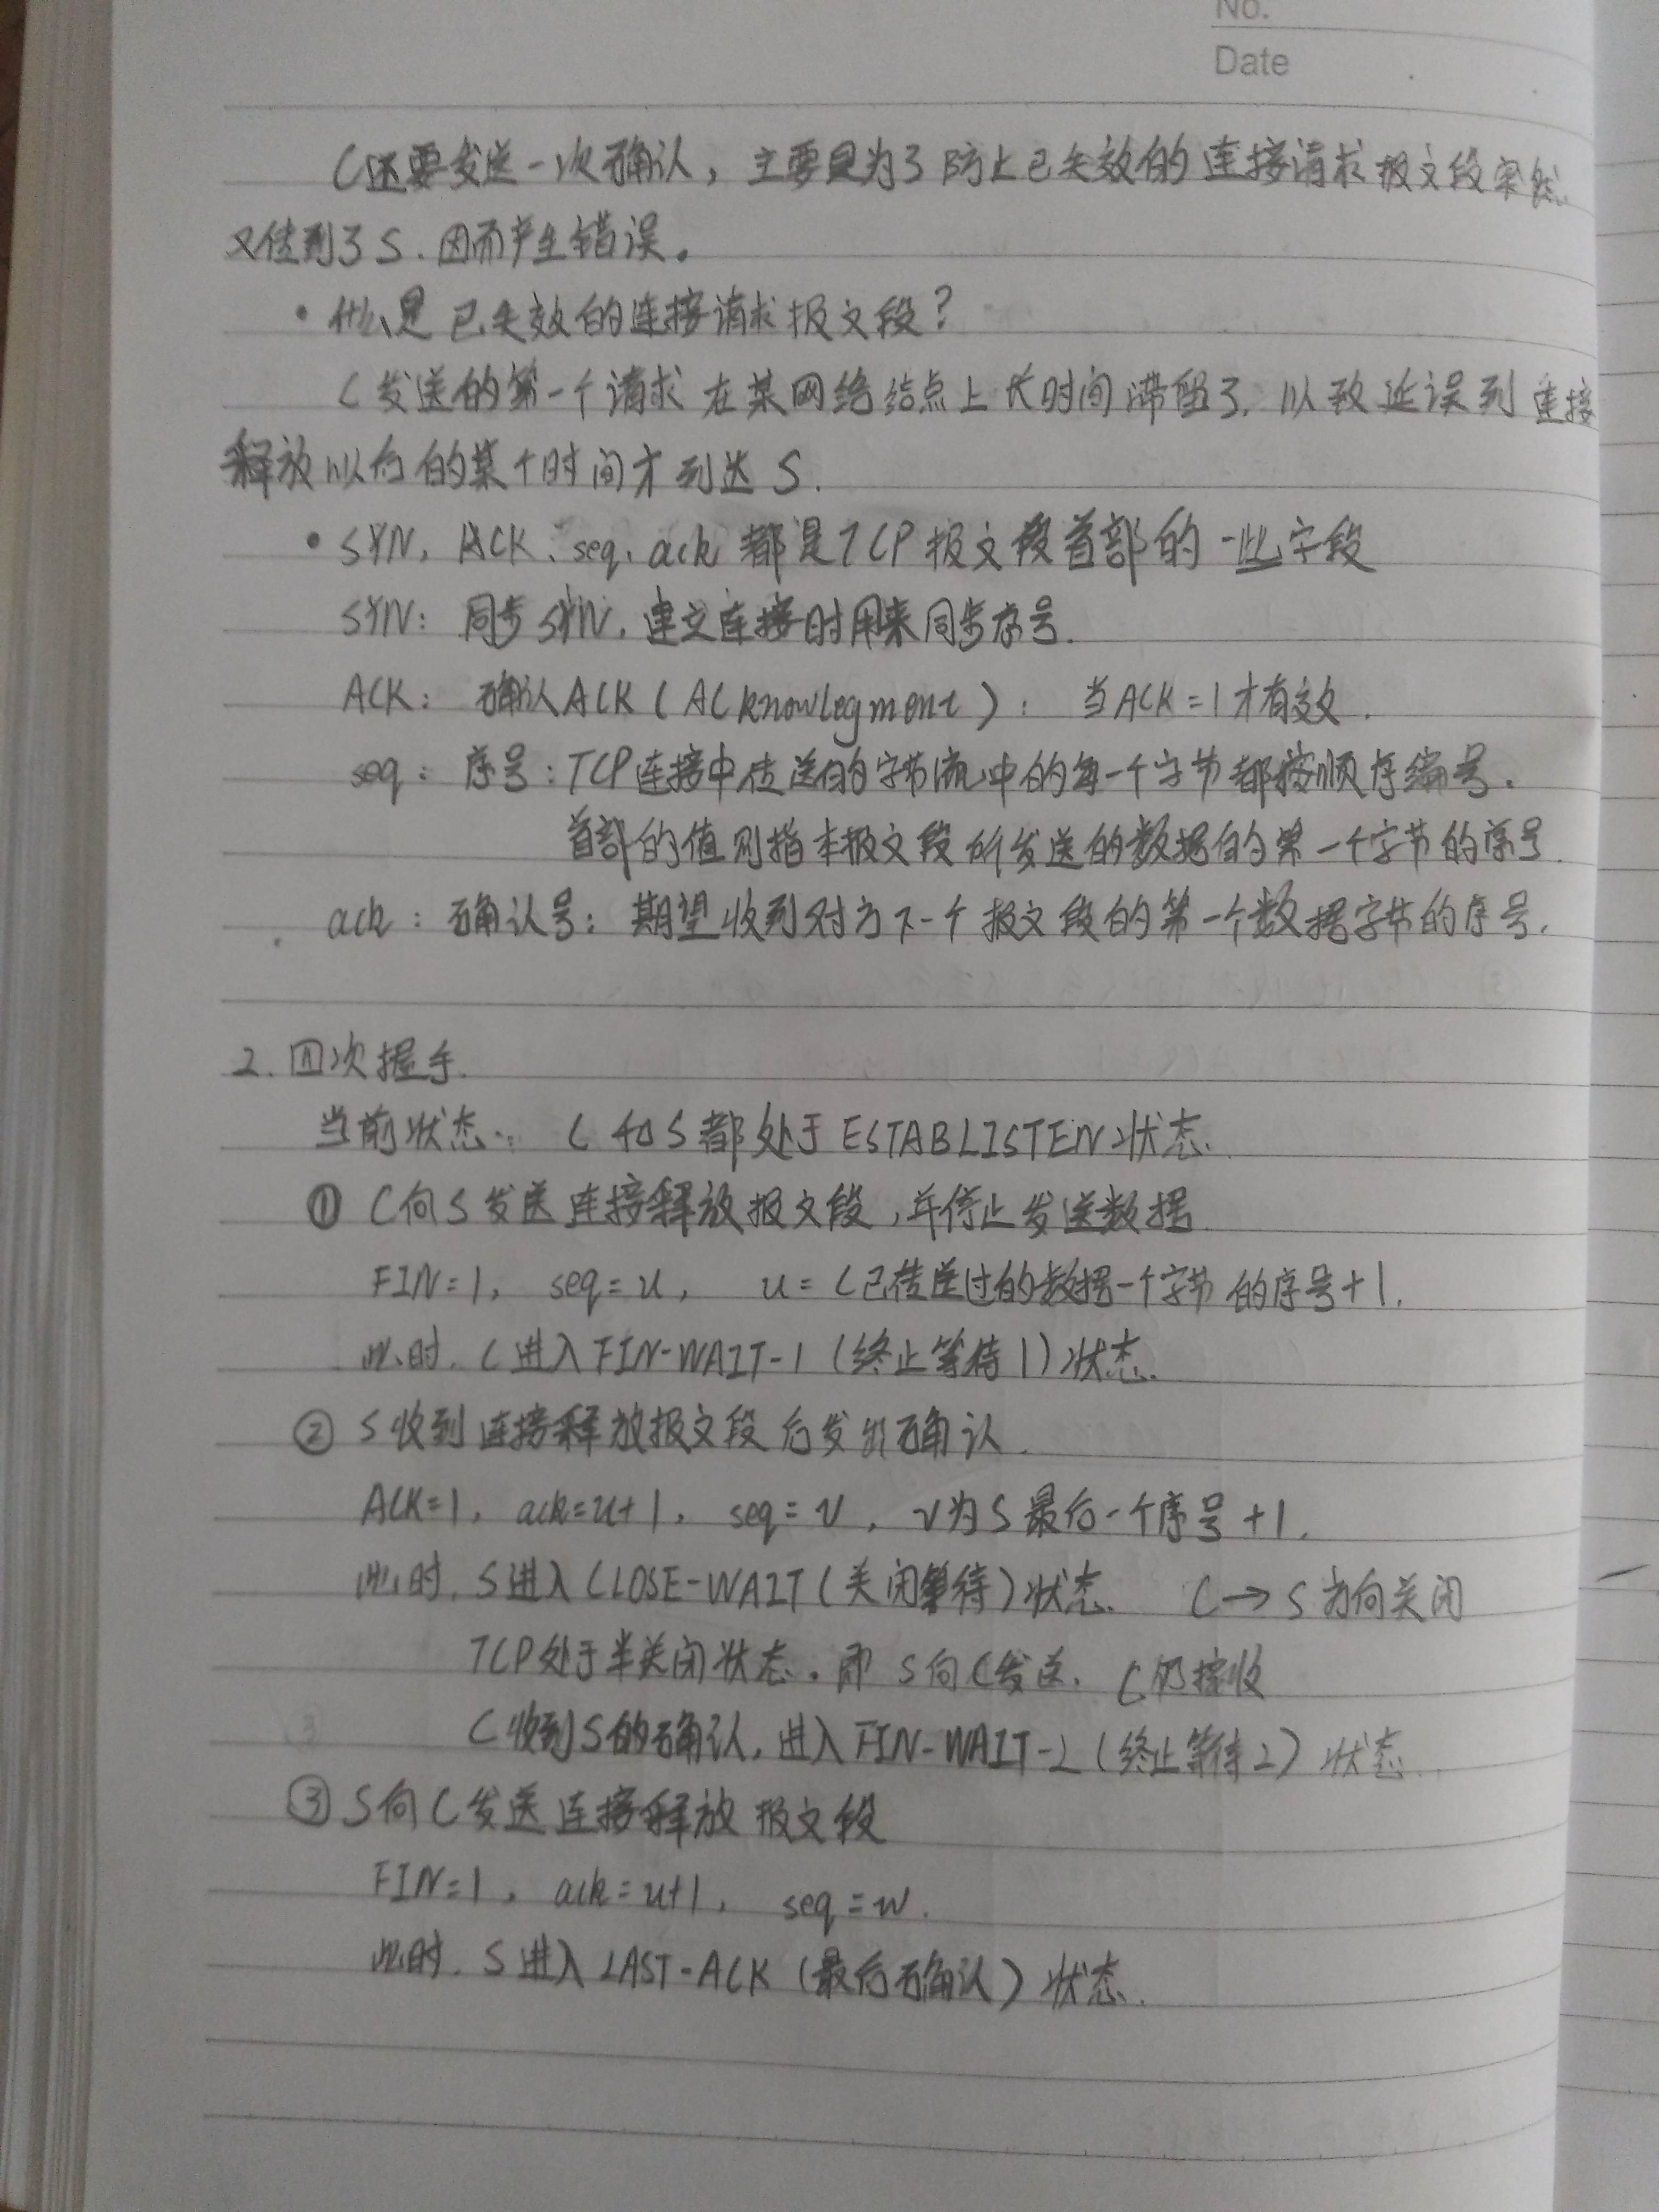 No.
Date
C还要发送一次确认，主要是为了防止已失效的连接请求报文段突然
又传到了S.因而产生错误。
• 什么是已失效的连接请求报文段？
C发送的第一个请求在某网络结点上长时间滞留了.以致延误到连接
释放以后的某个时间才到达S.
• SYN、ACK、seq、ack都是TCP报文段首部的一些字段
SYN：同步SYN，建立连接时用来同步序号.
ACK：确认ACK（ACknowlegment）：当ACK=1才有效.
seq：序号：TCP连接中传送的字节流中的每一个字节都按顺序编号.
首部的值则指本报文段所发送的数据的第一个字节的序号.
ack：确认号：期望收到对方下一个报文段的第一个数据字节的序号.
2.四次握手.
当前状态：C和S都处于ESTABLISTEN状态.
① C向S发送连接释放报文段,并停止发送数据
FIN=1, seq=u, u=C已传送过的数据一个字节的序号+1.
此时.C进入FIN-WAIT-1（终止等待1）状态.
② S收到连接释放报文段后发出确认.
ACK=1, ack=u+1, seq=v, v为S最后一个序号+1.
此时.S进入CLOSE-WAIT（关闭等待）状态. C→S方向关闭
TCP处于半关闭状态.即S向C发送.C仍接收
C收到S的确认,进入FIN-WAIT-2（终止等待2）状态.
③ S向C发送连接释放报文段
FIN=1, ack=u+1, seq=w.
此时.S进入LAST-ACK（最后确认）状态.